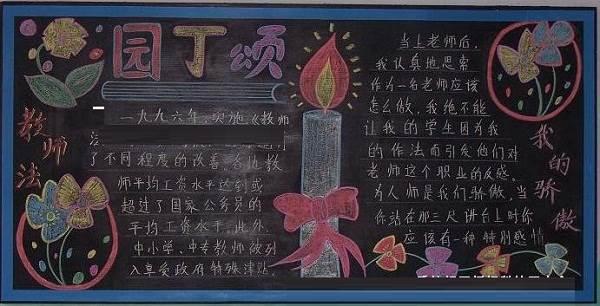 园丁颂
教师法
一九九六年，实施《教师
了不同程度的改善，各边教
师平均工资水平达到或
超过了国家公务员的
平均工资水平，此外，
中小学、中专教师被列
入享受政府特殊津贴。
当上老师后，
我认真地思索
作为一名老师应该
怎么做，我绝不能
让我的学生因为我
的作法而引发他们对
老师这个职业的反感，
为人师是我们骄傲，当
你站在那三尺讲台上时你
应该有一种特别感情
我的骄傲